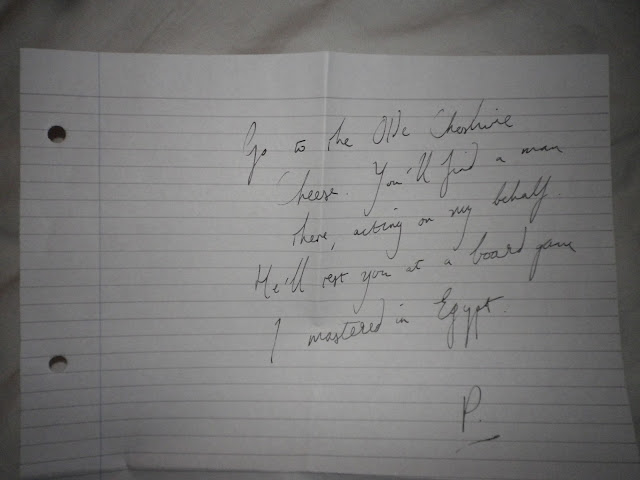 Go to the Olde Cheshire
Cheese. You'll find a man
there, acting on my behalf.
He'll test you at a board game
I mastered in Egypt.
P.